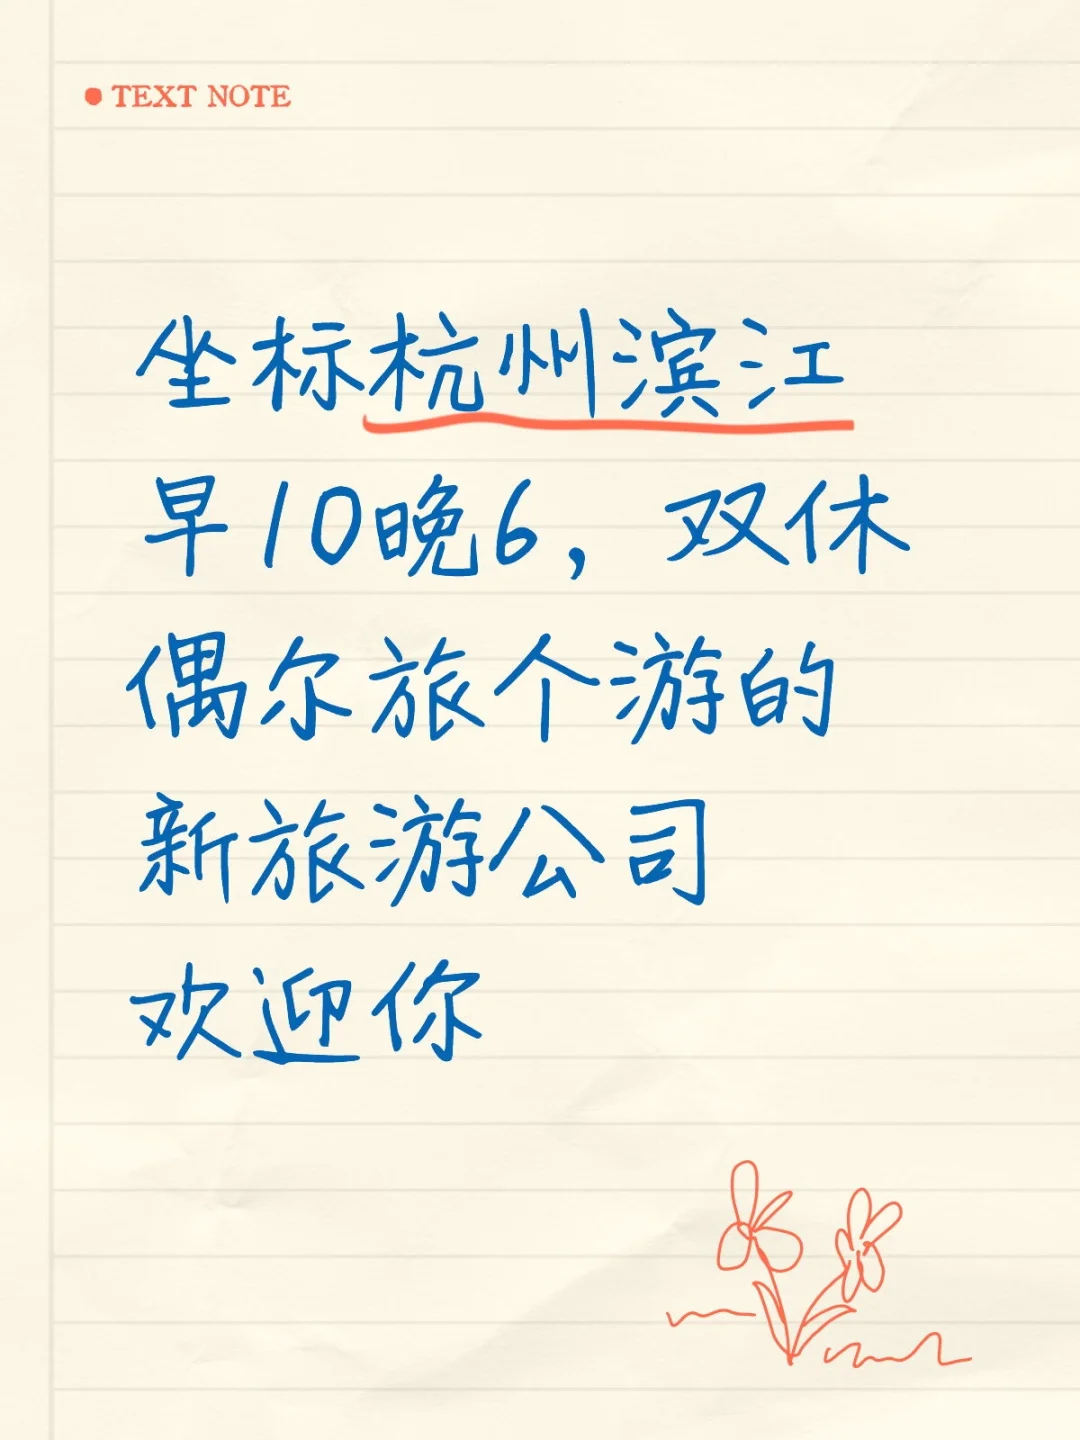 TEXT NOTE
坐标杭州滨江
早10晚6，双休
偶尔旅个游的
新旅游公司
欢迎你